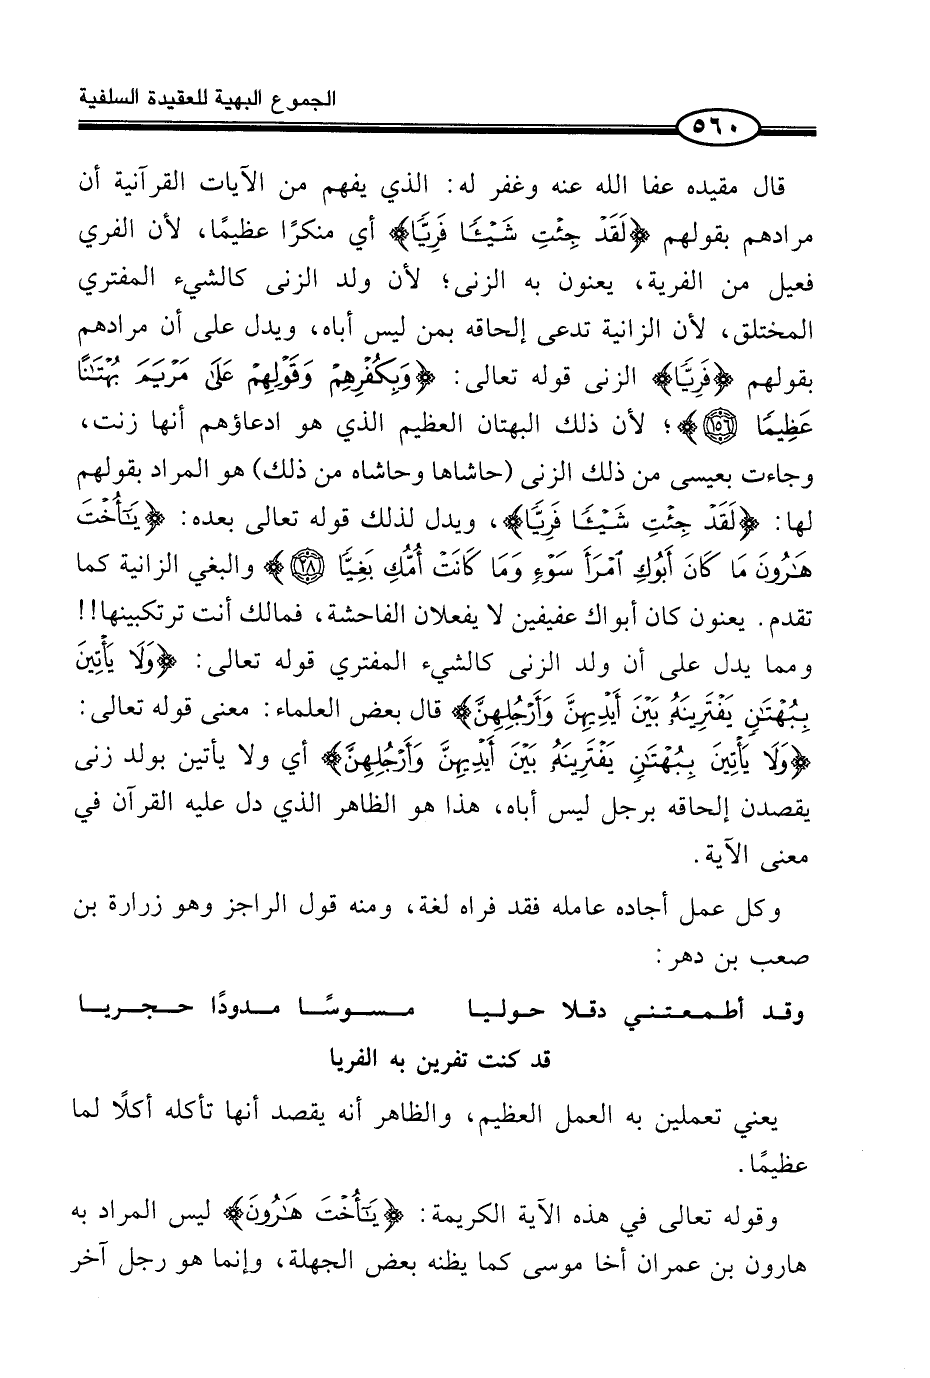 الجموع البهية للعقيدة السلفية
٥٦٠
قال مقيده عفا الله عنه وغفر له: الذي يفهم من الآيات القرآنية أن
مرادهم بقولهم ﴿لَقَدْ جِئْتِ شَيْـًٔا فَرِيًّا﴾ أي منكرًا عظيمًا، لأن الفري
فعيل من الفرية، يعنون به الزنى؛ لأن ولد الزنى كالشيء المفتري
المختلق، لأن الزانية تدعى إلحاقه بمن ليس أباه، ويدل على أن مرادهم
بقولهم ﴿فَرِيًّا﴾ الزنى قوله تعالى: ﴿وَبِكُفْرِهِمْ وَقَوْلِهِمْ عَلَىٰ مَرْيَمَ بُهْتَـٰنًا
عَظِيمًا ١٥٦﴾؛ لأن ذلك البهتان العظيم الذي هو ادعاؤهم أنها زنت،
وجاءت بعيسى من ذلك الزنى (حاشاها وحاشاه من ذلك) هو المراد بقولهم
لها: ﴿لَقَدْ جِئْتِ شَيْـًٔا فَرِيًّا﴾، ويدل لذلك قوله تعالى بعده: ﴿يَـٰٓأُخْتَ
هَـٰرُونَ مَا كَانَ أَبُوكِ ٱمْرَأَ سَوْءٍ وَمَا كَانَتْ أُمُّكِ بَغِيًّا ٢٨﴾ والبغي الزانية كما
تقدم. يعنون كان أبواك عفيفين لا يفعلان الفاحشة، فمالك أنت ترتكبينها!!
ومما يدل على أن ولد الزنى كالشيء المفتري قوله تعالى: ﴿وَلَا يَأْتِينَ
بِبُهْتَـٰنٍ يَفْتَرِينَهُۥ بَيْنَ أَيْدِيهِنَّ وَأَرْجُلِهِنَّ﴾ قال بعض العلماء: معنى قوله تعالى:
﴿وَلَا يَأْتِينَ بِبُهْتَـٰنٍ يَفْتَرِينَهُۥ بَيْنَ أَيْدِيهِنَّ وَأَرْجُلِهِنَّ﴾ أي ولا يأتين بولد زنى
يقصدن إلحاقه برجل ليس أباه، هذا هو الظاهر الذي دل عليه القرآن في
معنى الآية.
وكل عمل أجاده عامله فقد فراه لغة، ومنه قول الراجز وهو زرارة بن
صعب بن دهر:
وقد أطمعتني دقلا حوليا مسوسًا مدودًا حجريا
قد كنت تفرين به الفريا
يعني تعملين به العمل العظيم، والظاهر أنه يقصد أنها تأكله أكلًا لما
عظيمًا.
وقوله تعالى في هذه الآية الكريمة: ﴿يَـٰٓأُخْتَ هَـٰرُونَ﴾ ليس المراد به
هارون بن عمران أخا موسى كما يظنه بعض الجهلة، وإنما هو رجل آخر